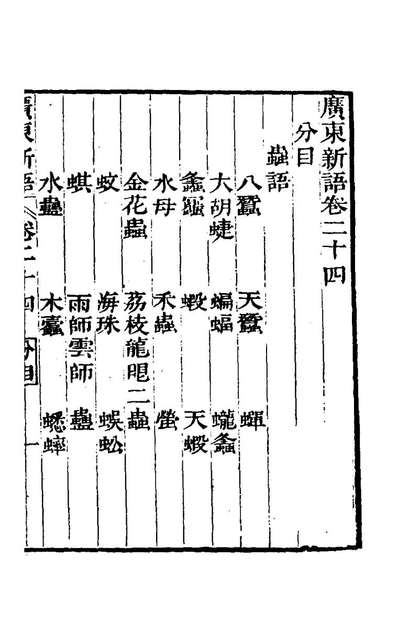 廣東新語卷二十四
分目
蟲語
八蠶 天蠶 蟬
大胡蜨 蝙蝠
蝦 天蝦
水母 禾蟲 螢
金花蟲 荔枝龍眼二蟲
蚊 海珠 蜈蚣
蜞 雨師雲師 蠱
水蠱 木蠹 蟋蟀
廣東新語 卷二十四 分目 一